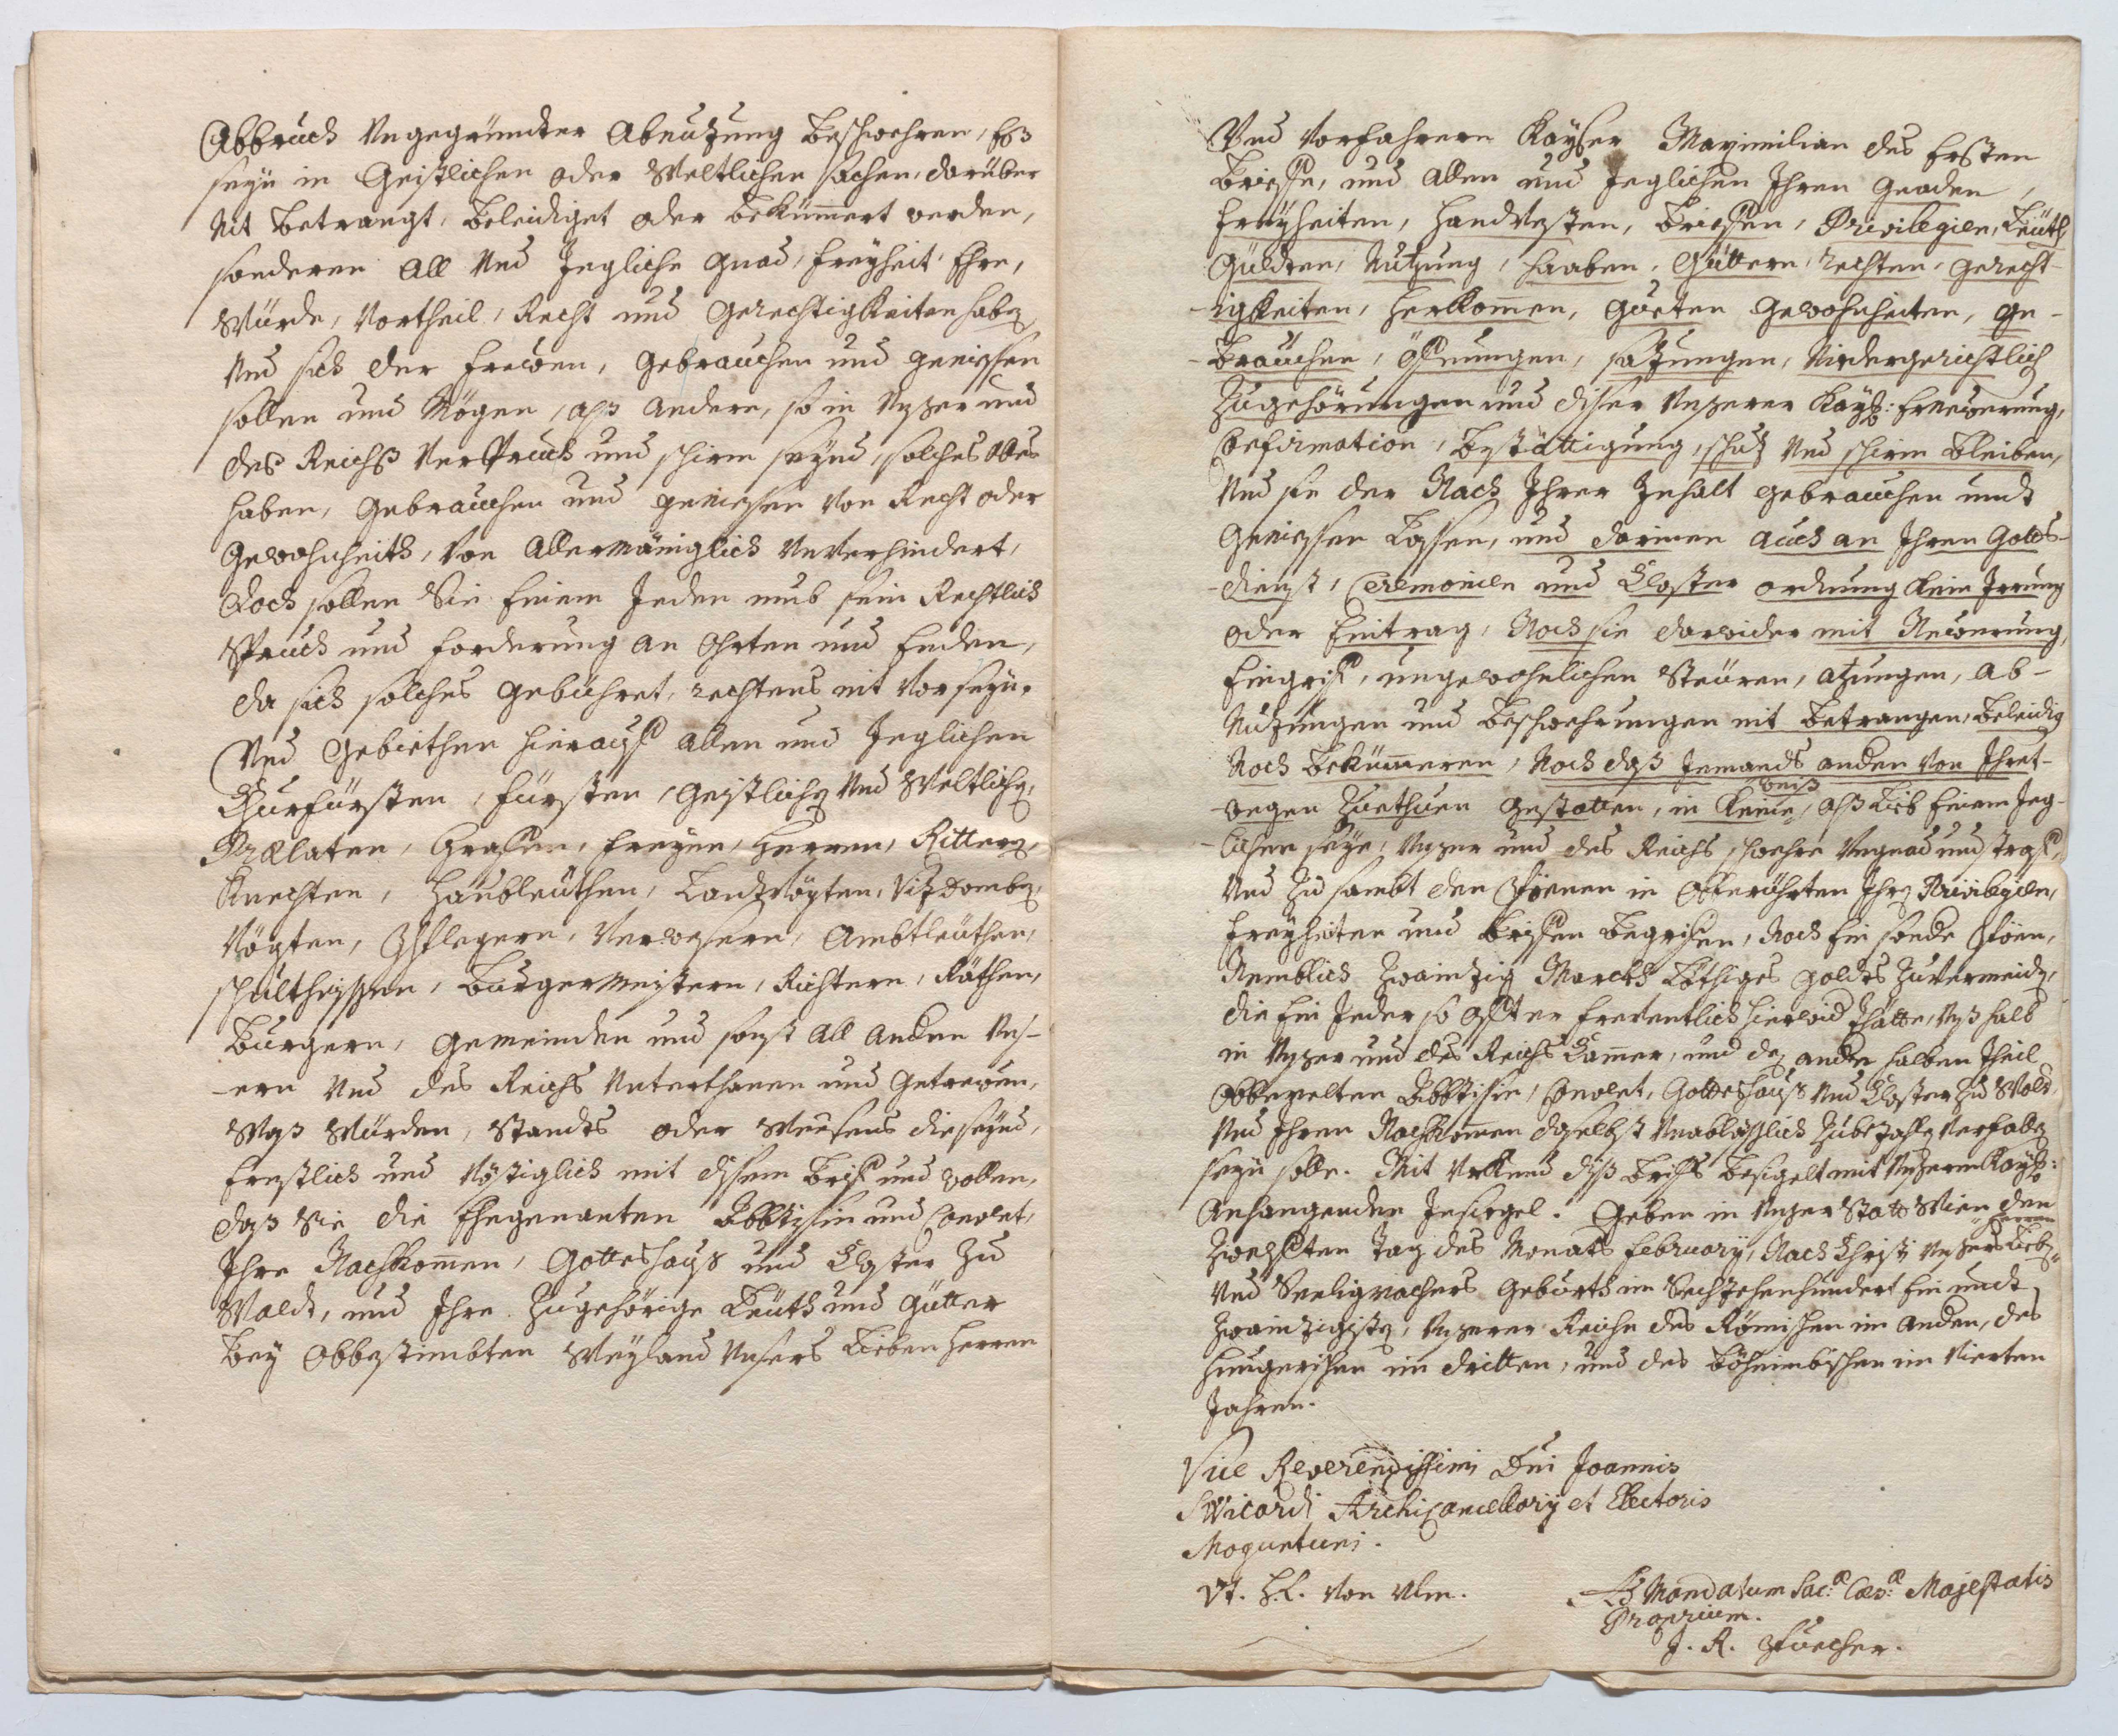 Abbruch Ungegründter Abnutzung beschwehren, Eß
seyn in Geistlichen oder Weltlichen sachen, darüber
Nit betrangt, beleidiget oder bekümmert werden,
sonderen all Und Jegliche Gnad, freyheit, Ehre,
Würde, Vortheil, Recht und Gerechtigkeiten haben
Und sich der freẅen, gebrauchen und geniessen
sollen und Mögen, alß andere, so in Unser und
des Reichß Verspruch und schirm seynd, solches alles
haben, gebrauchen und geniessen Von Recht oder
Gewohnheith, Von Allermäniglich Unverhindert,
Doch sollen Sie Einem Jeden umb sein Rechtlich
Spruch und forderung an Ohrten und Enden,
da sich solches gebühret, rechtens nit Vor seyn.
Und Gebiethen hierauff allen und Jeglichen
Churfürsten, Fürsten, Geistlichen Und Weltlichen,
Prælaten, Graffen, Freyen, Herren, Ritteren,
Knechten, Haubtleüthen, Landtvögten, Vitzdomben,
Vögten, Pflegern, Verwesern, Ambtleüthen,
schultheissen, Burgermeistern, Richtern, Räthen,
Burgern, Gemeinden und sonst all anderen Uns-
-ern Und des Reichs Unterthanen und Getreẅen,
Waß Würden, Standts oder Weesens die seynd,
Ernstlich und Vestiglich mit disem brieff und wollen,
daß Sie die Ehegenanten Äbbtissin und Convent,
Ihre Nachkommen, Gotteshauß und Closter Zu
Waldt, und Ihre Zugehörige Leüth und Gütter
bey Obbestimbten Weyland Unsers Lieben Herren
Und Vorfahren Kayser Maximilian des Ersten
brieffe, und allen und Jeglichen Ihren Gnaden,
Freyheiten, Handvesten, brieffen, Privilegien, Leüth
Güldten, Nutzung, Haaben, Güttern, rechten, Gerecht-
-igkeiten, Herkommen, Gueten Gewohnheiten, Ge-
-breüchen, Öffnungen, satzungen, Nidergerichtlich
Zugehörungen und diser Unserer Kayß: Erneẅerung,
Confirmation, bestättigung, schutz Und schirm bleiben,
Und sie der Nach Ihrer Inhalt gebrauchen undt
Geniessen Lassen, und darinnen auch an Ihren Gotts-
-dienst, Ceremonien und Closter ordnung Kein Irrung
oder Eintrag, Noch sie darwider mit Neẅerung,
Eingriff, ungewohnlichen Steüren, atzungen, Ab-
Nutzungen und Beschwehrungen nit betrangen, beleidigen
Noch bekümmeren, Noch daß Jemands anderen Von Ihret-
-wegen Zuethuen gestatten, in Keine weiß, alß Lieb Einem Jeg-
-lichen seye, Unser und des Reichs schwehre Ungnad und straff,
Und Zu sambt den Pöenen in Obberührten Ihren Privilegien,
Freyheiten und brieffen begriffen, Noch Ein sonder Pöen,
Nemblich Zwaintzig Marckh Löthiges Goldts Zuvermeiden,
die Ein Jeder so offt er freventlich hierwider thätte, Unß halb
in Unser und des Reichs Cammer, und den andern halben Theil
Obbemelten Äbbtissin, Convent, Gotteshauß Und Closter Zu Waldt
Und Ihren Nachkommen daselbst Unabläßlich Zubezahlen Verfallen
seyn solle. Mit Urkund diß brieffs besigelt mit Unserem Kayß:
Anhangenden Insiegel. Geben in Unser Statt Wien den
Zwelfften Tag des Monats February, Nach Christi Unsers Lieben Herren
Und Seeligmachers Geburth im Sechzehenhundert Ein undt
Zwaintzigisten, Unserer Reiche des Römischen im anderen, des
Hungerischen im dritten, und des Böheimbischen im Vierten
Jahren.
Vice Reverendissimi Dni Joannis
Swicardi Archicancellarij et Electoris
Moguntini.
Vt. H. L. Von Ulm.
Ad Mandatum Sac:æ Cæs:æ Majestatis
Proprium.
J. R. Puecher.